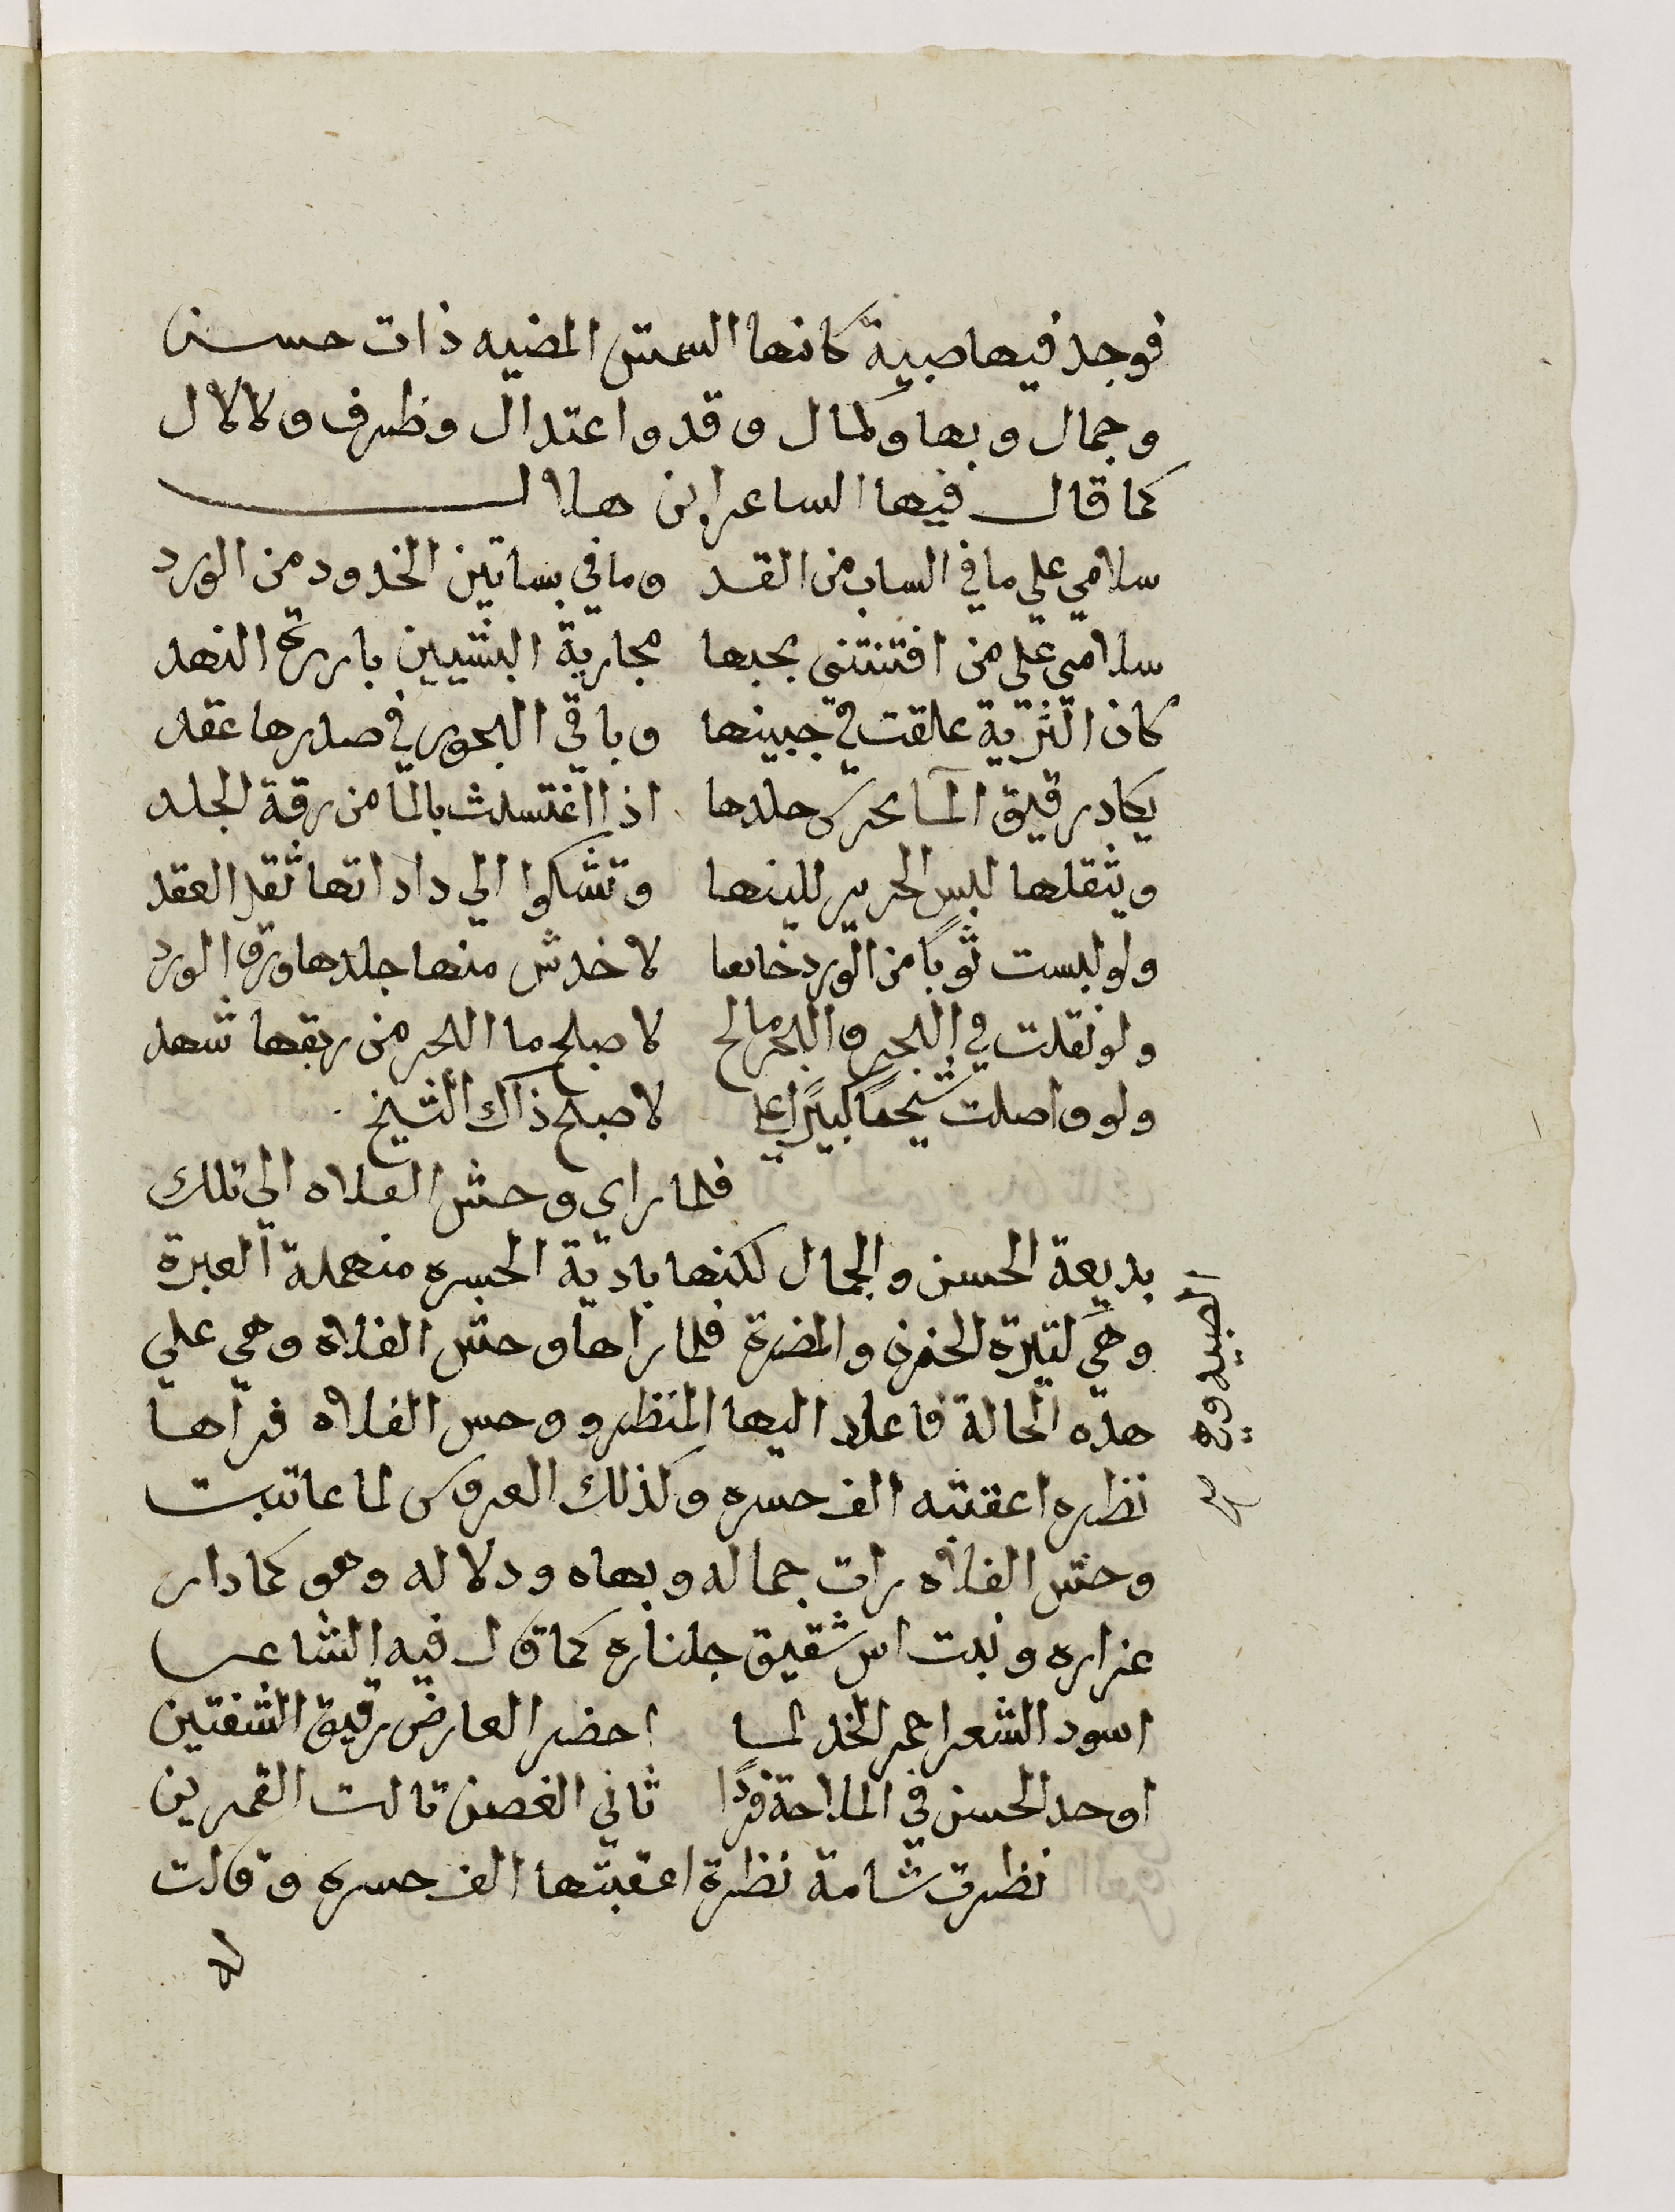 فوجد فيها صبية كانها الشمش المضيه ذات حسن
وجمال وبها وكمال وقد واعتدال وظرف ودلال
كما قال فيها الساعر ابن هلال
سلامي علي ما في الساب من القد وما في بساتين الخدود من الورد
سلامي علي من افتنتني بحبها مجارية بارزة النهد
كان الثرية علقت في جبينها وباقي النجوم في صدرها عقد
يكاد رقيق الما جلدها اذا اغتسلت بالما من رقة الجلد
ويثقلها لبس الحرير للينها وتشكوا الي داداتها ثقل العقد
ولو لبست ثوبًا من الورد خالصا لاخدش منها جلدها ورق الورد
ولو تفلت في البحر والبحر مالح لاصبح ما البحر من ريقها شهد
ولو واصلت شيخًا كبيرًا علي لاصبح ذاك الشيخ
فلما راي وحش الفلاه الي تلك
بديعة الحسن والجمال لكنها بادية الحسره منهملة العبرة
وهي كتيرة الحزن والمضرة فلما راها وحش الفلاه وهي علي
هذه الحالة فاعاد اليها النظر ووحس الفلاه فراها
نظره اعقبته الف حسره وكذلك العروس لما عاتبت
وحش الفلاه رات جماله وبهاه ودلاله وهو كما دار
عزاره ونبت اس شقيق جلناره كما قال فيه الشاعر
اسود الشعر احمر الخد لما اخضر العارض رقيق الشفتين
اوحد الحسن في الملاحة فردًا ثاني الغصن تالت القمرين
نظرت شامة نظرة اعقبتها الف حسره وقالت
له
الصبيه وره